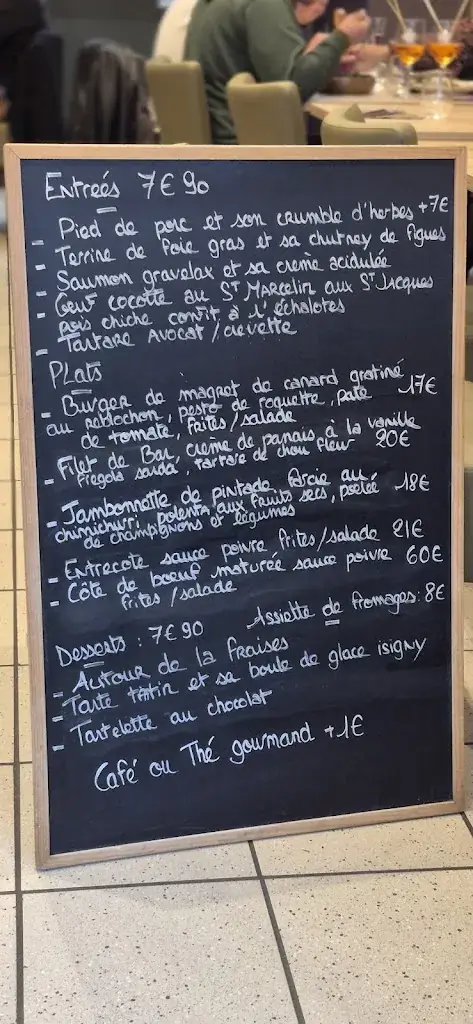 Entreés 7€90
- Pied de porc et son crumble d'herbes +7€
- Terrine de foie gras et sa chutney de figues
- Saumon gravelax et sa creme acidulée
- Oeuf cocotte au St Marcelin aux St Jacques
pois chiche confit à l'échalotes
- Tartare Avocat / crevette
Plats
- Burger de magret de canard gratiné
au reblochon, pesto de roquette, pate 17€
de tomate, frites / salade
- Filet de Bar, crème de panais à la vanille
fregola sarda, tartare de chou fleur 20€
- Jambonnette de pintade farcie au
chimichurri, polenta aux fruits secs, poelée 18€
de champignons et légumes
- Entrecote sauce poivre frites / salade 21€
- Côte de boeuf maturée sauce poivre 60€
frites / salade
Assiette de fromages: 8€
Desserts : 7€90
- Autour de la fraises
- Tarte tatin et sa boule de glace isigny
- Tartelette au chocolat
Café ou Thé gourmand +1€